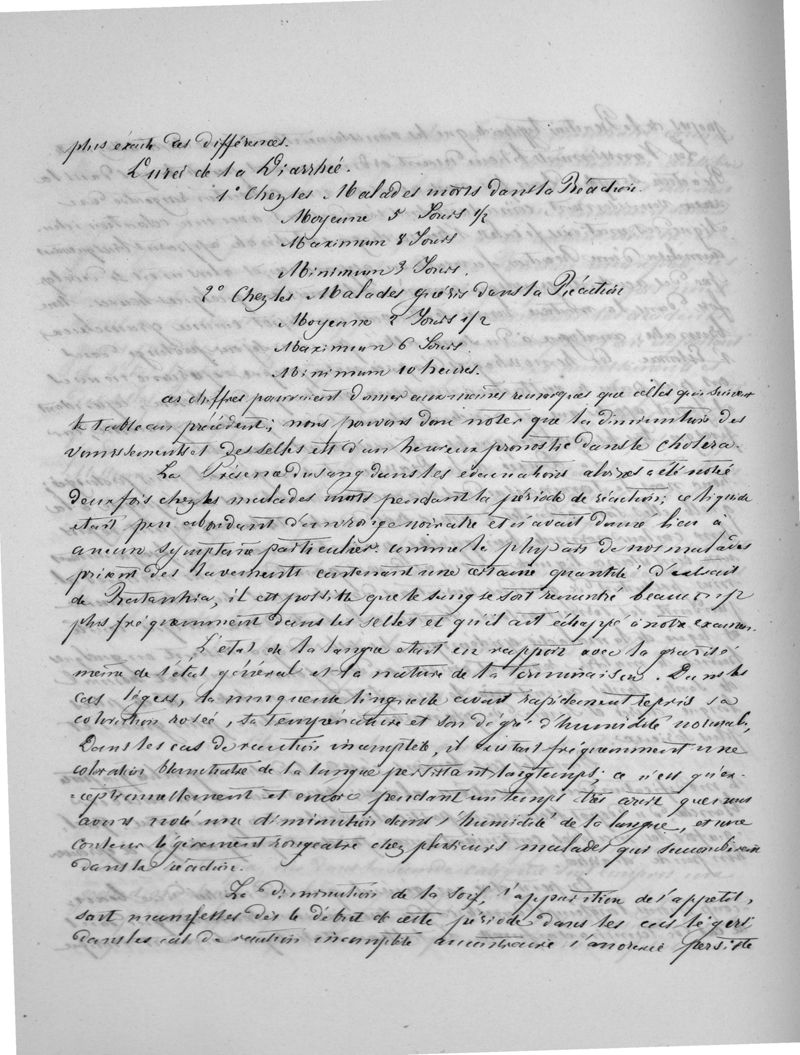 plus exacte des différences.
Durée de la Diarrhée.
1° Chez les Malades morts dans la Réaction.
Moyenne 5 Jours 1/2
Maximum 8 Jours
Minimum 3 Jours.
2° Chez les Malades guéris dans la Réaction
Moyenne 2 Jours 1/2
Maximum 6 Jours.
Minimum 10 heures.
ces chiffres pourraient donner aux mêmes remarques que celles qui suivent
le tableau précédent; nous pouvons donc noter que la diminution des
vomissements et des selles est d'un heureux pronostic dans le choléra.
La Présence du sang dans les évacuations alvines a été notée
deux fois chez les malades morts pendant la période de réaction; ce liquide
était peu abondant d'un rouge noiratre et n'avait donné lieu à
aucun symptôme particulier. comme la plupart de nos malades
prirent des lavements contenant une certaine quantité d'extrait
de Ratanhia, il est possible que le sang se soit rencontré beaucoup
plus fréquemment dans les selles et qu'il ait échappé à notre examen.
L'état de la langue était en rapport avec la gravité
même de l'état général et la nature de la terminaison. Dans les
cas légers, la muqueuse linguale avait rapidement repris sa
coloration rosée, sa température et son dégré d'humidité normale,
Dans les cas de réaction incomplète, il existait fréquemment une
coloration blanchatre de la langue persistant longtemps; ce n'est qu'ex-
=ceptionnellement et encore pendant un temps très court que nous
avons noté une diminution dans l'humidité de la langue, et une
couleur légèrement rougeatre chez plusieurs malades qui succombèrent
dans la réaction.
La diminution de la soif, l'apparition de l'appetit,
sont manifestes dès le début de cette période dans les cas légers
dans les cas de réaction incomplète au contraire l'anorexie persiste